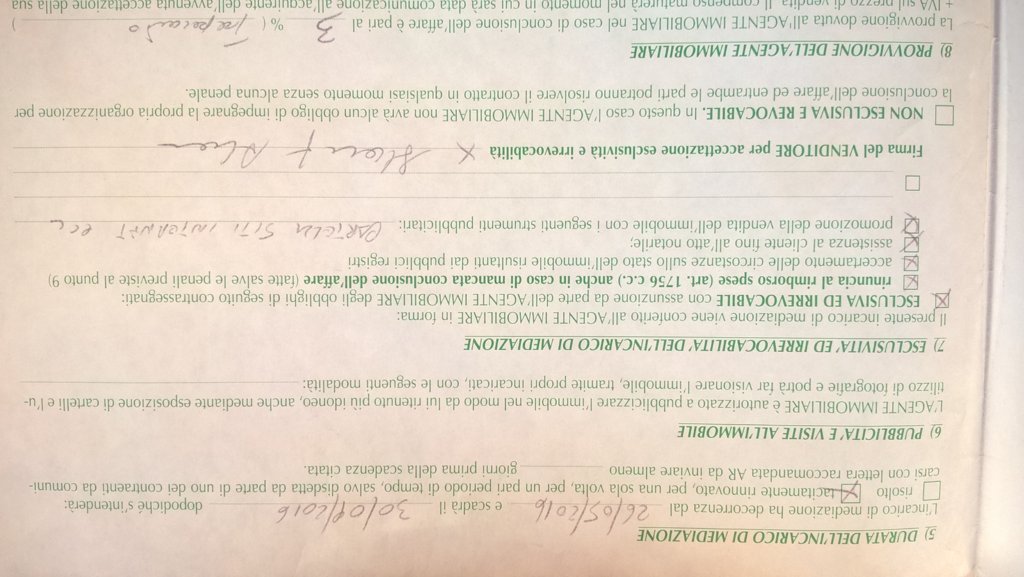 5) DURATA DELL'INCARICO DI MEDIAZIONE
L'incarico di mediazione ha decorrenza dal 26/05/2016 e scadrà il dopodiché s'intenderà:
risolto tacitamente rinnovato, per una sola volta, per un pari periodo di tempo, salvo disdetta da parte di uno dei contraenti da comuni-
carsi con lettera raccomandata AR da inviare almeno giorni prima della scadenza citata.
6) PUBBLICITA' E VISITE ALL'IMMOBILE
L'AGENTE IMMOBILIARE è autorizzato a pubblicizzare l'immobile nel modo da lui ritenuto più idoneo, anche mediante esposizione di cartelli e l'u-
tilizzo di fotografie e potrà far visionare l'immobile, tramite propri incaricati, con le seguenti modalità:
7) ESCLUSIVITA' ED IRREVOCABILITA' DELL'INCARICO DI MEDIAZIONE
Il presente incarico di mediazione viene conferito all'AGENTE IMMOBILIARE in forma:
X ESCLUSIVA ED IRREVOCABILE con assunzione da parte dell'AGENTE IMMOBILIARE degli obblighi di seguito contrassegnati:
X rinuncia al rimborso spese (art. 1756 c.c.) anche in caso di mancata conclusione dell'affare (fatte salve le penali previste al punto 9)
X accertamento delle circostanze sullo stato dell'immobile risultanti dai pubblici registri
X assistenza al cliente fino all'atto notarile;
X promozione della vendita dell'immobile con i seguenti strumenti pubblicitari: CARTELLI SITI INTERNET ECC
Firma del VENDITORE per accettazione esclusività e irrevocabilità X
NON ESCLUSIVA E REVOCABILE. In questo caso l'AGENTE IMMOBILIARE non avrà alcun obbligo di impegnare la propria organizzazione per
la conclusione dell'affare ed entrambe le parti potranno risolvere il contratto in qualsiasi momento senza alcuna penale.
8) PROVVIGIONE DELL'AGENTE IMMOBILIARE
La provvigione dovuta all'AGENTE IMMOBILIARE nel caso di conclusione dell'affare è pari al 3 % ( )
+ IVA sul prezzo di vendita. Il compenso maturerà nel momento in cui sarà data comunicazione all'acquirente dell'avvenuta accettazione della sua